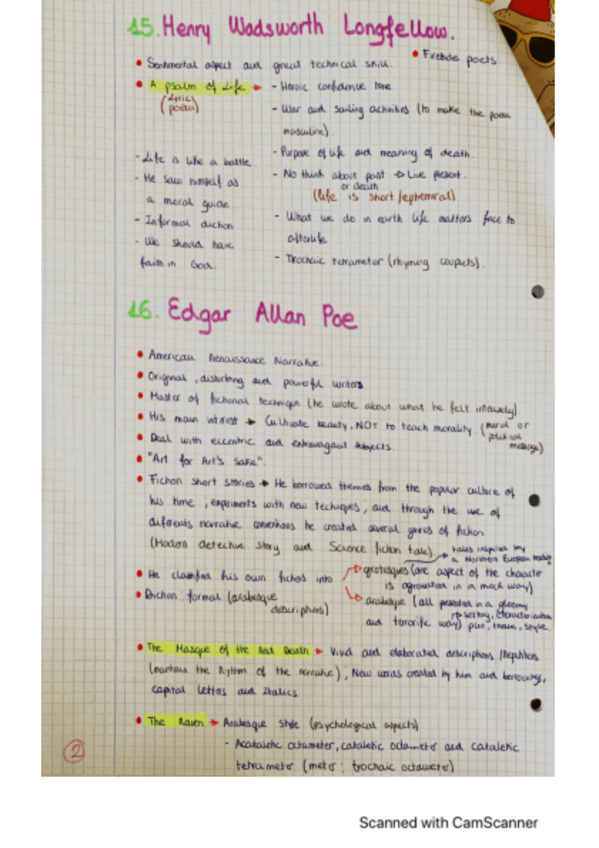 15. Henry Wadsworth Longfellow.
• Sentimental aspect and great technical skill.
• Fireside poets.
• A psalm of Life → - Heroic confidence tone
(lyric poem)
- War and sailing activities (to make the poem
masculine).
- Purpose of life and meaning of death.
- No think about past or death → Live present.
(life is short/ephemeral)
- What we do in earth life matters face to
afterlife
- Trochaic tetrameter (rhyming couplets).
- Life is like a battle.
- He saw himself as
a moral guide
- Informal diction
- We should have
faith in God.
16. Edgar Allan Poe
• American Renaissance Narrative.
• Original, disturbing and powerful writers
• Master of fictional technique (he wrote about what he felt intensely)
• His main interest → Cultivate beauty, NOT to teach morality (moral or
political
message)
• Deal with eccentric and extravagant subjects.
• "Art for Art's Sake".
• Fiction short stories → He borrowed themes from the popular culture of
his time, experiments with new techniques, and through the use of
differents narrative conventions he created several genres of fiction
(Modern detective story and Science fiction tale)
tales inspired by
a Northern European
• He classified his own fictions into
→ grotesques (one aspect of the character
is agravated in a mock way)
→ arabesque (all presented in a gloomy
and terrorific way)
→ setting, characterization
plot, theme, style.
• Diction formal (arabesque
descriptions)
• The Masque of the Red Death → Vivid and elaborated descriptions/Repetitions
(maintain the Rythm of the narrative); New words created by him and borrowings,
capital letters and Italics
• The Raven → Arabesque style (psychological aspects)
- Acatalectic octameter, catalectic octameter and catalectic
tetrameter (meter: trochaic octameter)
2
Scanned with CamScanner